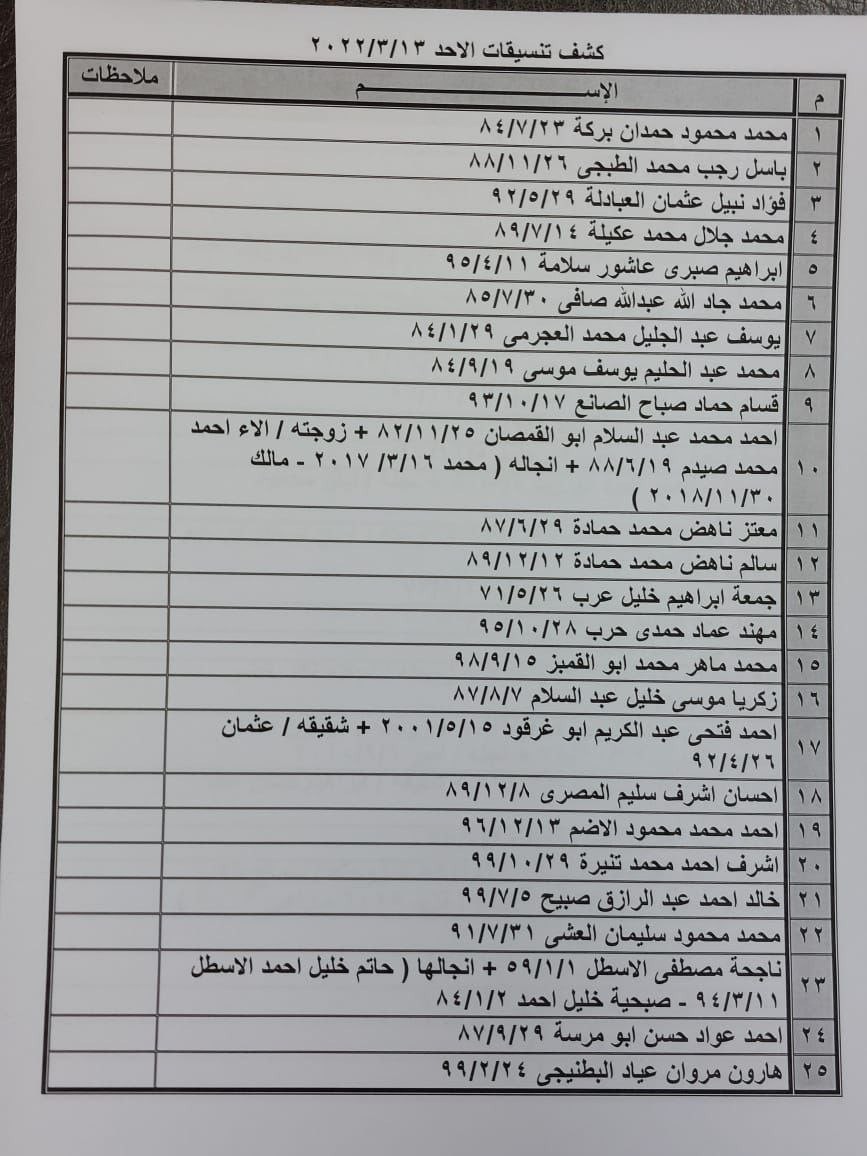 كشف تنسيقات الاحد ٢٠٢٢/٣/١٣
م الإســـــــــم ملاحظات
١ محمد محمود حمدان بركة ٨٤/٧/٢٣
٢ باسل رجب محمد الطبجى ٨٨/١١/٢٦
٣ فؤاد نبيل عثمان العبادلة ٩٢/٥/٢٩
٤ محمد جلال محمد عكيلة ٨٩/٧/١٤
٥ ابراهيم صبرى عاشور سلامة ٩٥/٤/١١
٦ محمد جاد الله عبدالله صافى ٨٥/٧/٣٠
٧ يوسف عبد الجليل محمد العجرمى ٨٤/١/٢٩
٨ محمد عبد الحليم يوسف موسى ٨٤/٩/١٩
٩ قسام حماد صباح الصانع ٩٣/١٠/١٧
احمد محمد عبد السلام ابو القمصان ٨٢/١١/٢٥ + زوجته / الاء احمد
١٠ محمد صيدم ٨٨/٦/١٩ + انجاله ( محمد ٣/١٦/ ٢٠١٧ - مالك
٢٠١٨/١١/٣٠ )
١١ معتز ناهض محمد حمادة ٨٧/٦/٢٩
١٢ سالم ناهض محمد حمادة ٨٩/١٢/١٢
١٣ جمعة ابراهيم خليل عرب ٧١/٥/٢٦
١٤ مهند عماد حمدى حرب ٩٥/١٠/٢٨
١٥ محمد ماهر محمد ابو القمبز ٩٨/٩/١٥
١٦ زكريا موسى خليل عبد السلام ٨٧/٨/٧
١٧ احمد فتحى عبد الكريم ابو غرقود ٢٠٠١/٥/١٥ + شقيقه / عثمان
٩٢/٤/٢٦
١٨ احسان اشرف سليم المصرى ٨٩/١٢/٨
١٩ احمد محمد محمود الاضم ٩٦/١٢/١٣
٢٠ اشرف احمد محمد تنيرة ٩٩/١٠/٢٩
٢١ خالد احمد عبد الرازق صبيح ٩٩/٧/٥
٢٢ محمد محمود سليمان العشى ٩١/٧/٣١
٢٣ ناجحة مصطفى الاسطل ٥٩/١/١ + انجالها ( حاتم خليل احمد الاسطل
٩٤/٣/١١ - صبحية خليل احمد ٨٤/١/٢
٢٤ احمد عواد حسن ابو مرسة ٨٧/٩/٢٩
٢٥ هارون مروان عياد البطنيجى ٩٩/٢/٢٤